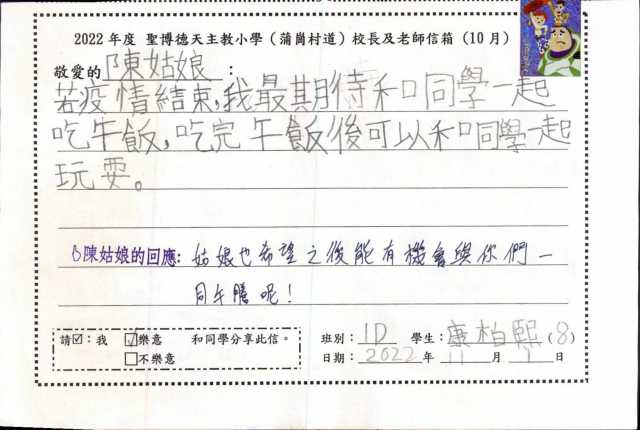 2022 年度 聖博德天主教小學（蒲崗村道）校長及老師信箱 (10 月)
敬愛的 陳姑娘 ：
若疫情結束,我最期待和同學一起
吃午飯,吃完午飯後可以和同學一起
玩耍。
陳姑娘的回應: 姑娘也希望之後能有機會與你們一
同午膳呢!
請☑：我 ☑樂意 和同學分享此信。
☐不樂意
班別：1D 學生：康柏熙 (8)
日期：2022 年 11 月 1 日